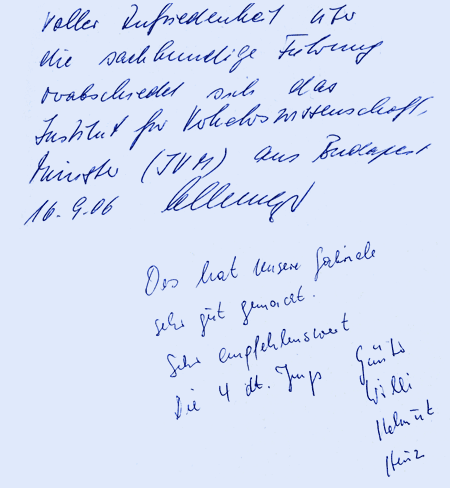 Voller Zufriedenheit über
die sachkundige Führung
verabschiedet sich das
Institut für Verkehrswissenschaft,
Münster (IVM) aus Budapest
16.9.06
Das hat unsere Gabriele
sehr gut gemacht.
Sehr empfehlenswert
Die 4 dt. Jungs Günter
Willi
Helmut
Heinz